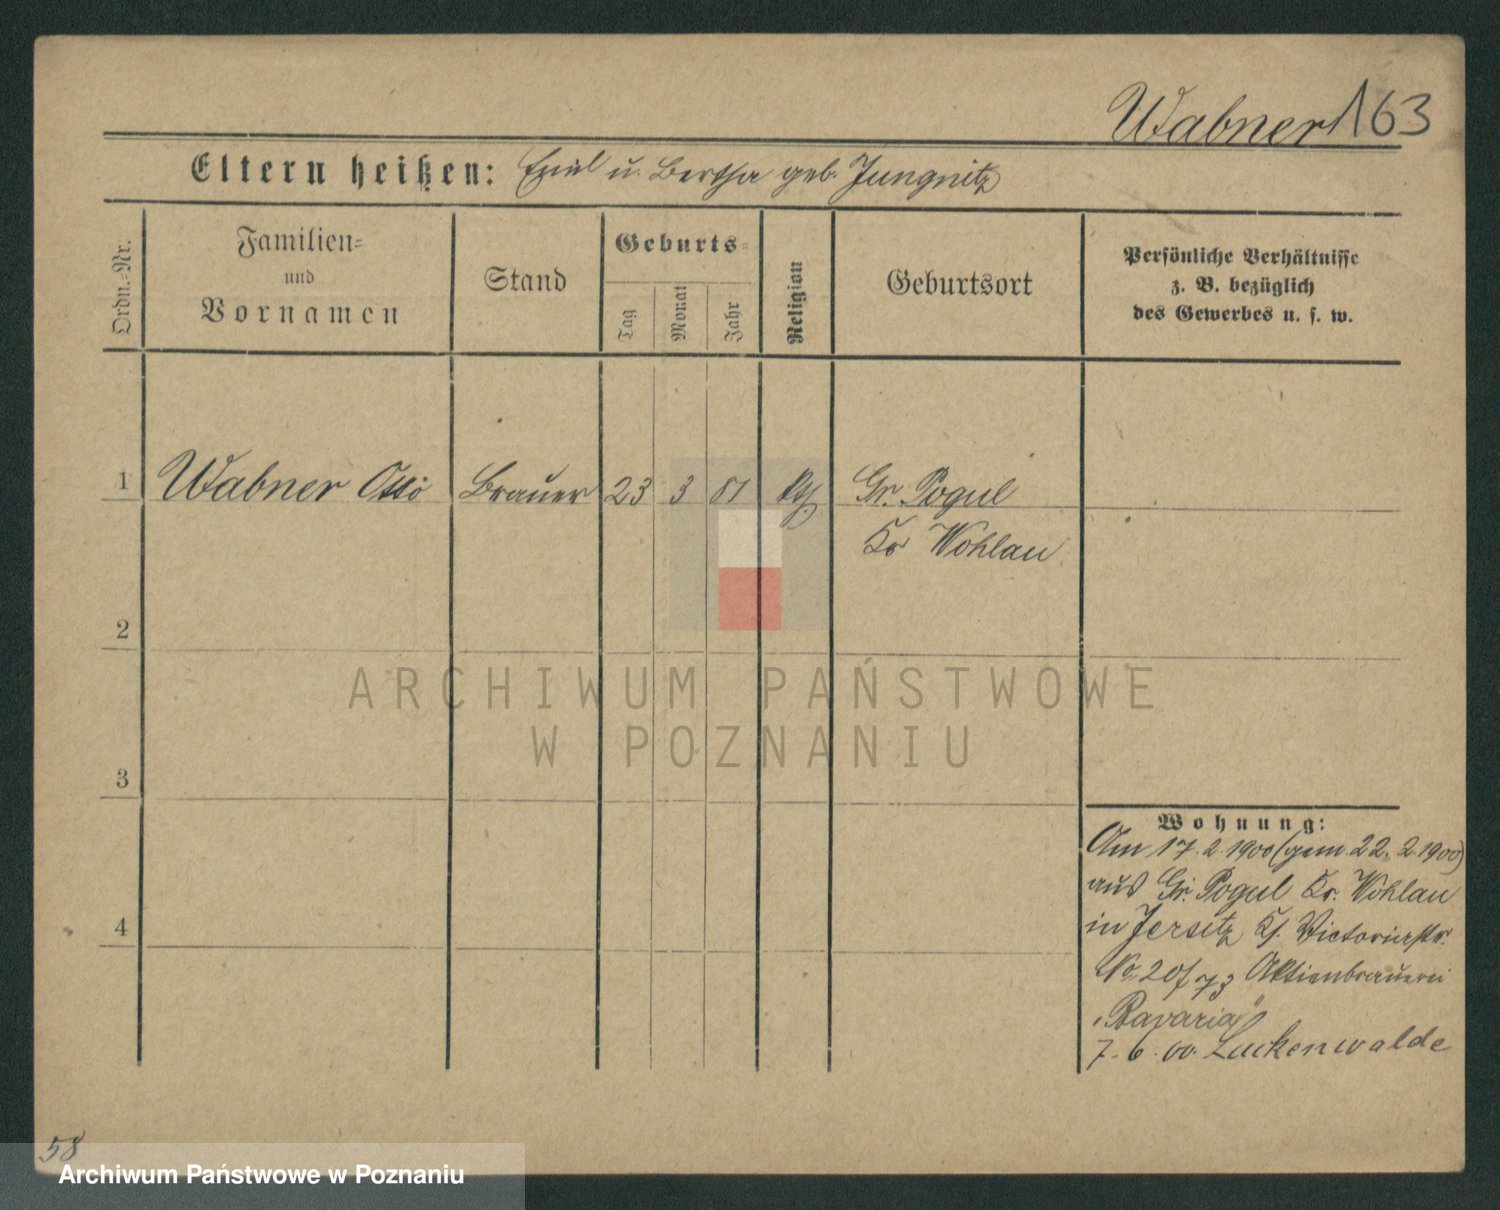 Wabner 163
Eltern heißen: Emil u. Bertha geb. Jungnitz
Ordn.-Nr.
Familien-
und
Vornamen
Stand
Geburts-
Tag
Monat
Jahr
Religion
Geburtsort
Persönliche Verhältnisse
z. B. bezüglich
des Gewerbes u. s. w.
1 Wabner Otto Brauer 23 3 81 kth Gr. Pogul
Kr Wohlau
2
3
4
Wohnung:
Am 17. 2. 1900 (gem. 22. 2. 1900)
aus Gr. Pogul Kr. Wohlau
in Jersitz Victoriastr.
No 20/73 Aktienbrauerei
„Bavaria"
7. 6. 00. Luckenwalde
58
ARCHIWUM PAŃSTWOWE
W POZNANIU
Archiwum Państwowe w Poznaniu